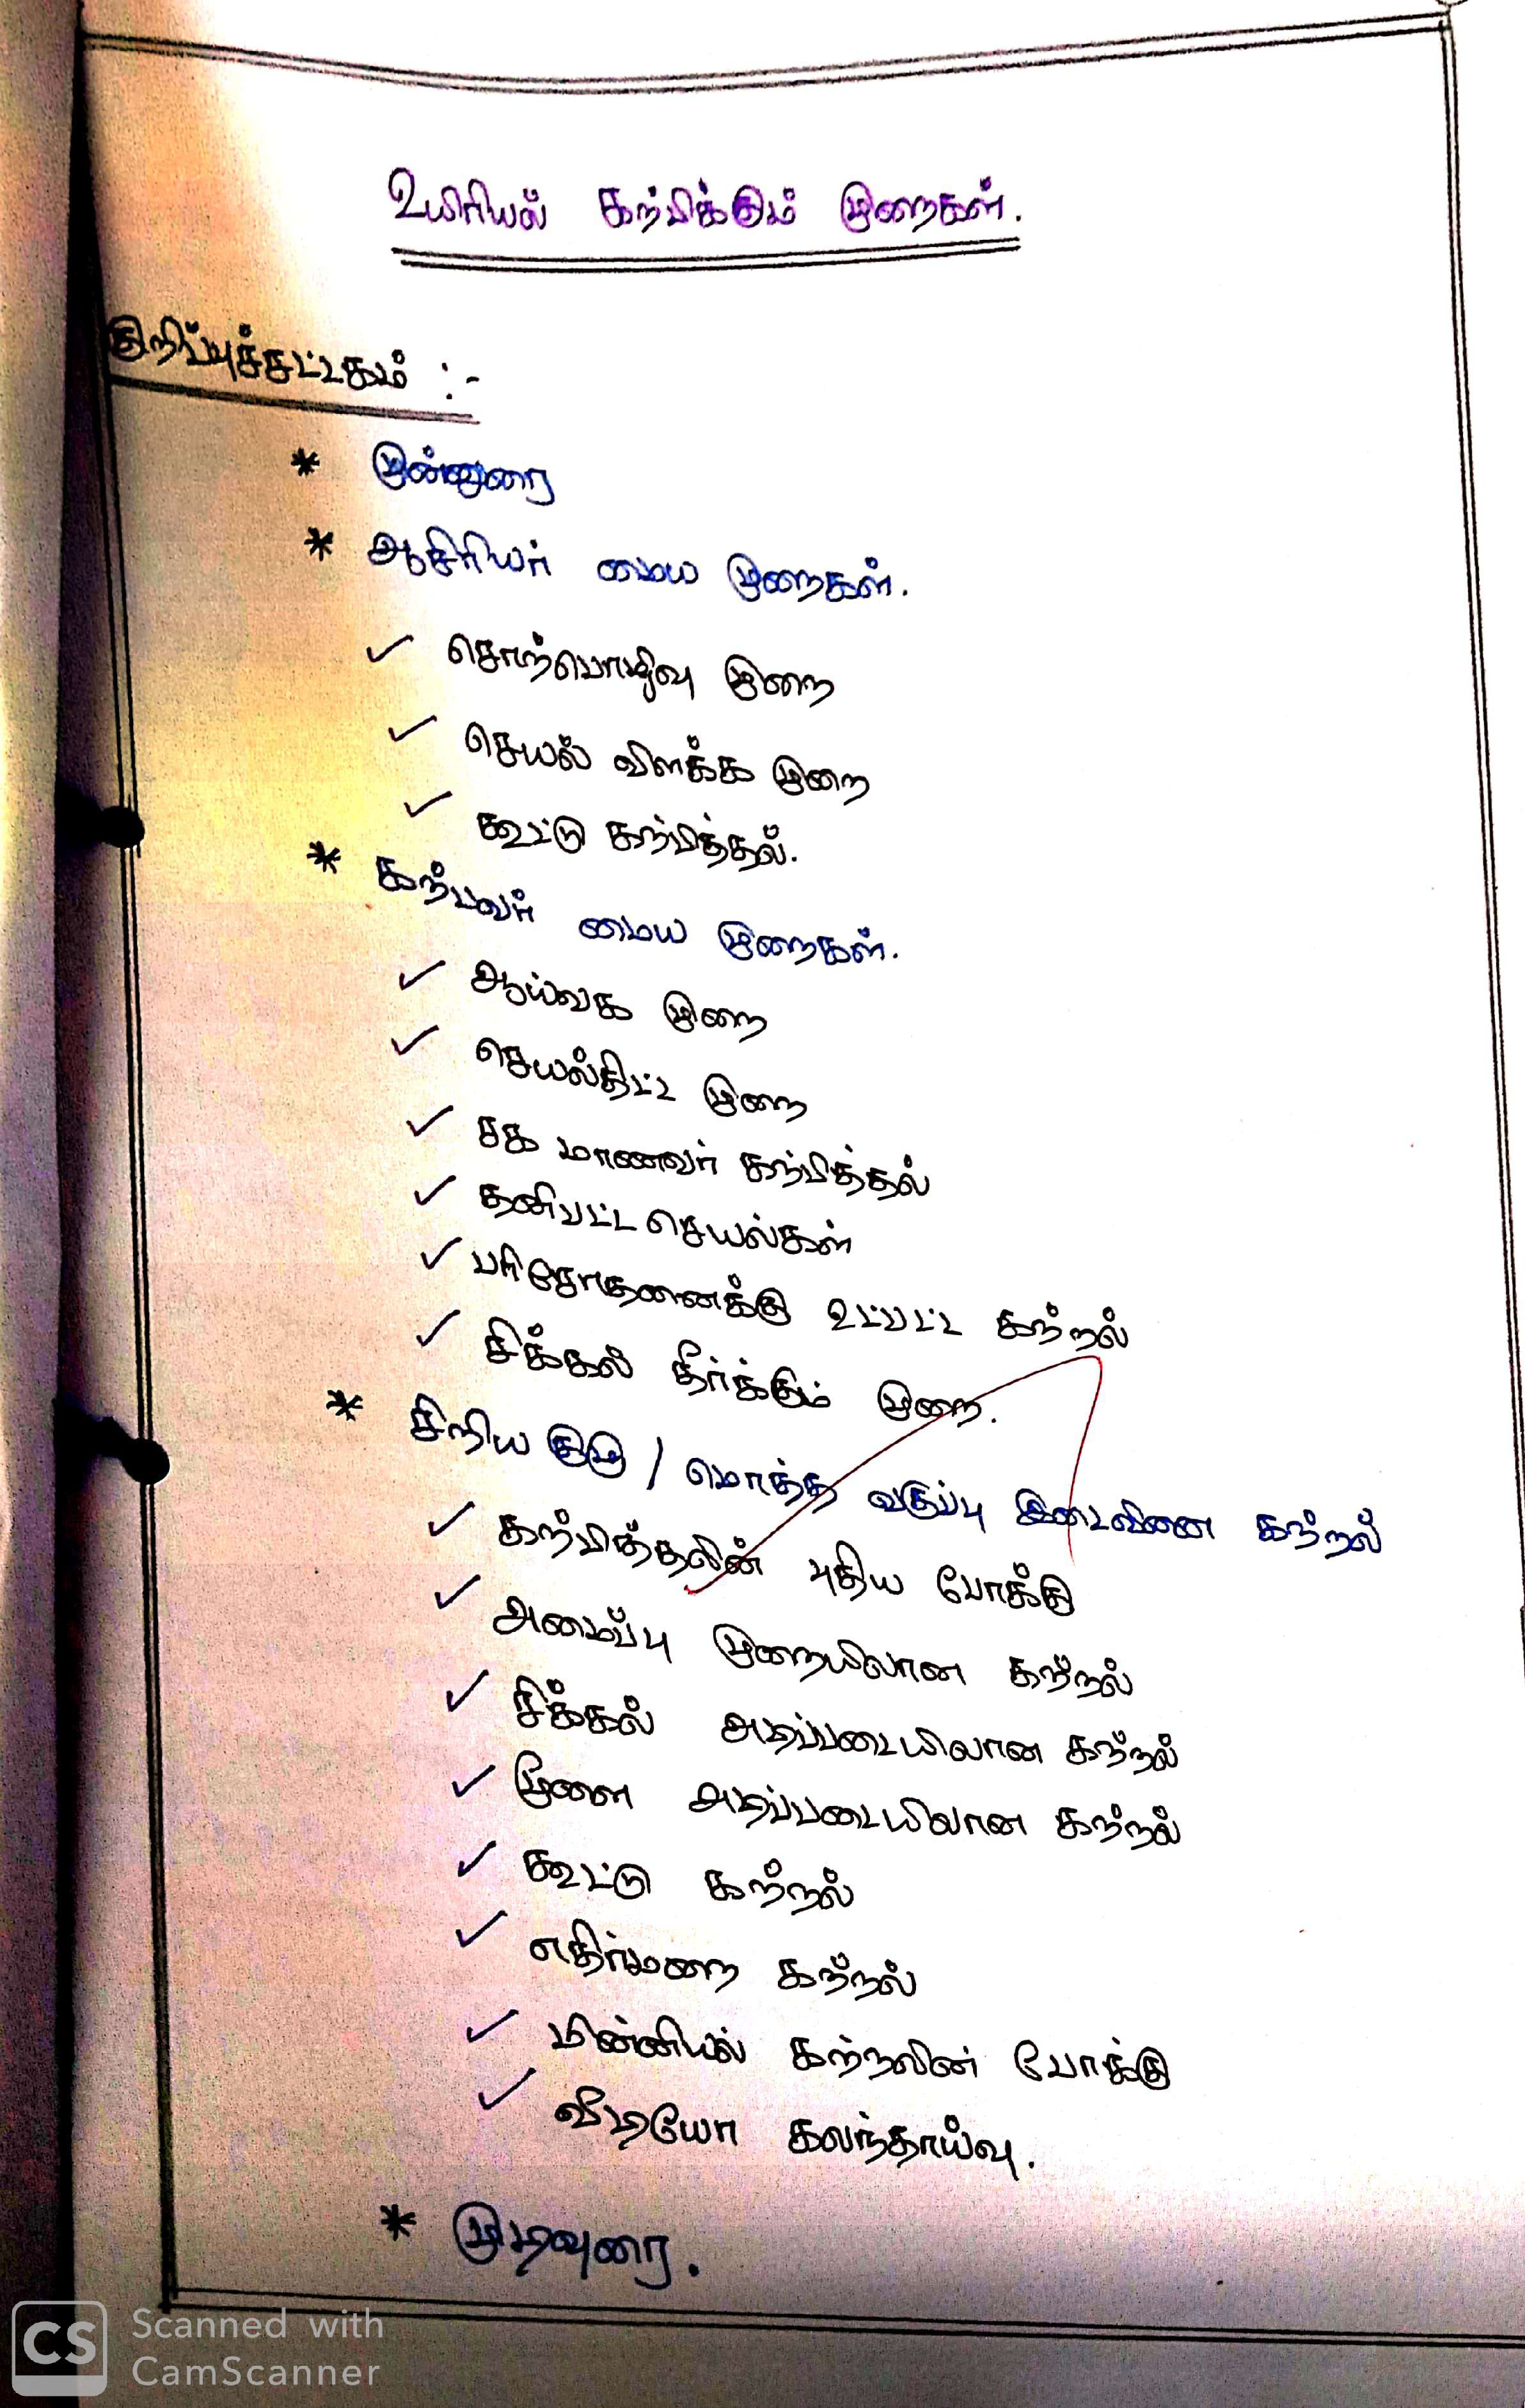 உயிரியல் கற்பிக்கும் முறைகள்.
குறிப்புச்சட்டகம் :-
* முன்னுரை
* ஆசிரியர் மைய முறைகள்.
✓ சொற்பொழிவு முறை
✓ செயல் விளக்க முறை
✓ கூட்டு கற்பித்தல்.
* கற்பவர் மைய முறைகள்.
✓ ஆய்வக முறை
✓ செயல்திட்ட முறை
✓ சக மாணவர் கற்பித்தல்
✓ தனிபட்ட செயல்கள்
✓ பரிசோதனைக்கு உட்பட்ட கற்றல்
✓ சிக்கல் தீர்க்கும் முறை.
* சிறிய குழு / மொத்த வகுப்பு இடைவினை கற்றல்
✓ கற்பித்தலின் புதிய போக்கு
✓ அமைப்பு முறையிலான கற்றல்
✓ சிக்கல் அடிப்படையிலான கற்றல்
✓ மூளை அடிப்படையிலான கற்றல்
✓ கூட்டு கற்றல்
✓ எதிர்மறை கற்றல்
✓ மின்னியல் கற்றலின் போக்கு
✓ வீடியோ கலந்தாய்வு.
* முடிவுரை.
CS Scanned with
CamScanner